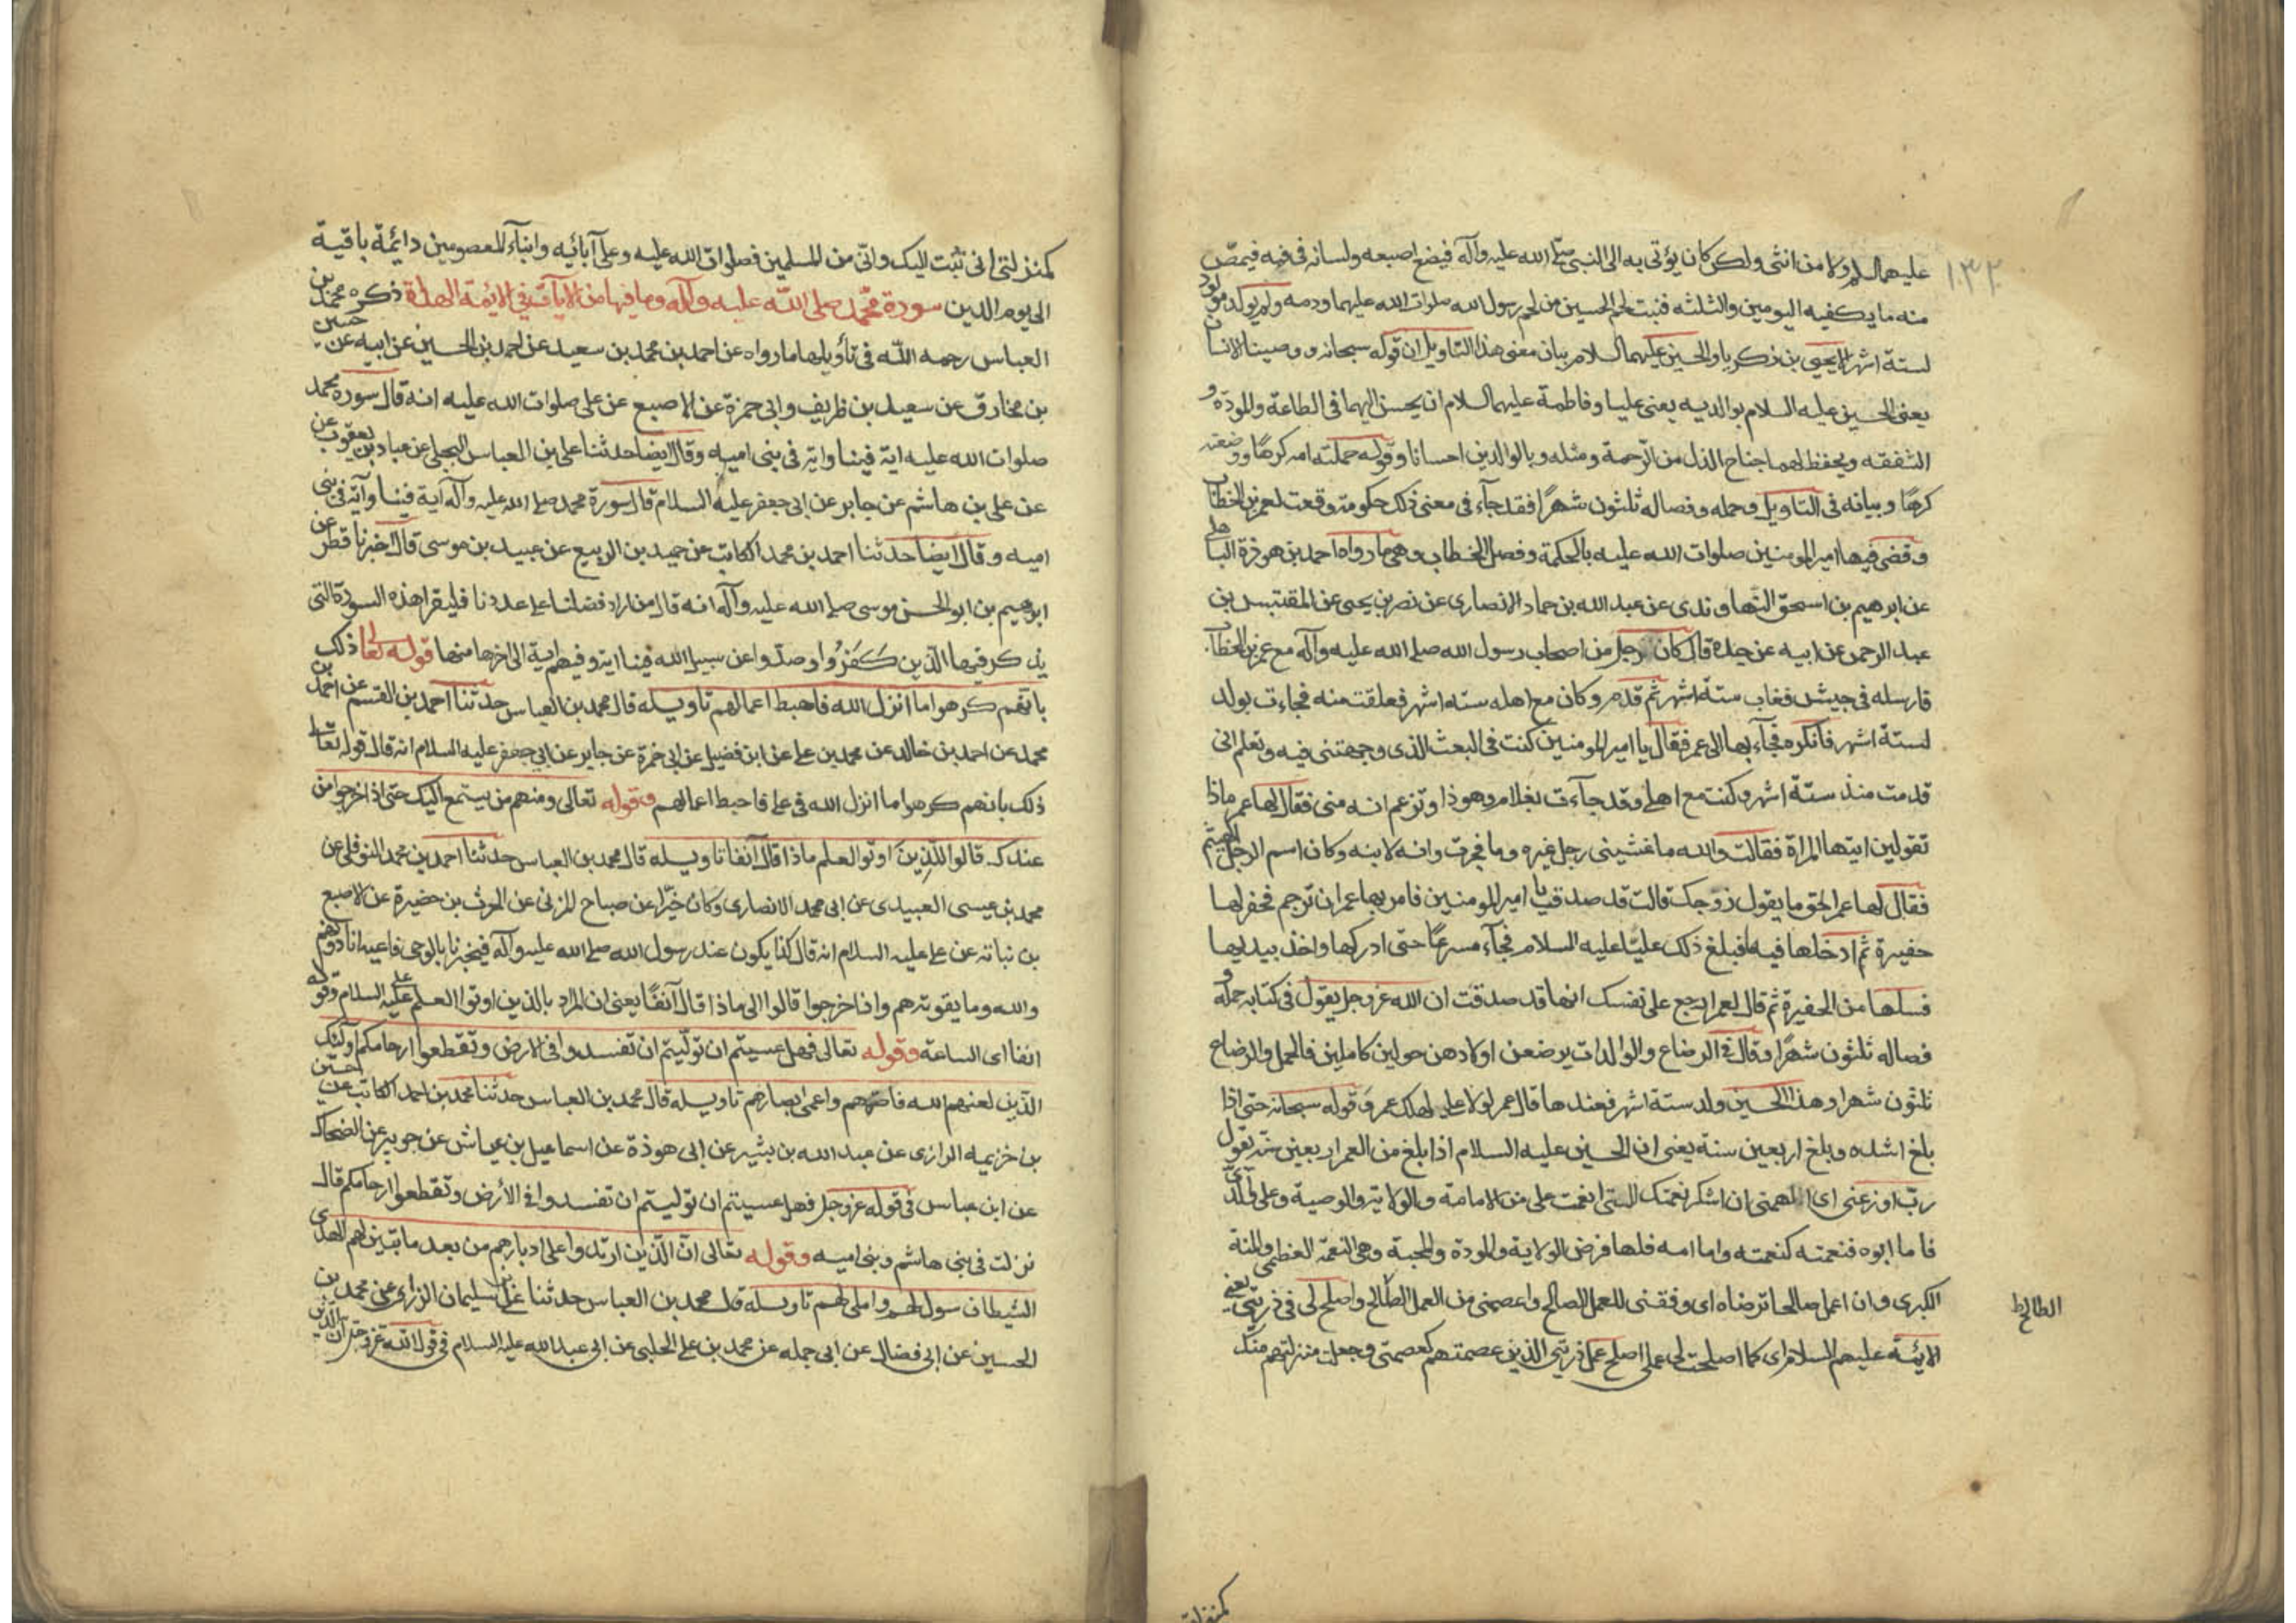 ١٣٢
عليهما السلم ولا من انثى ولكن كان يؤتى به الى النبي صلى الله عليه وآله فيضع اصبعه ولسانه في فيه فيمصّ
منه ما يكفيه اليومين والثلثه فنبت لحم الحسين من لحم رسول الله صلوات الله عليهما ودمه ولم يولد مولود
لستة اشهر الا يحيى بن زكريا والحسين عليهما السلام بيان معنى هذا التاويل ان قوله سبحانه ووصينا الانسان
يعنى الحسين عليه السلام بوالديه يعنى عليا وفاطمة عليهما السلام ان يحسن اليهما في الطاعة والمودة و
الشفقه ويخفظ لهما جناح الذل من الرحمة ومثله وبالوالدين احسانا وقوله حملته امه كرهًا ووضعته
كرهًا وبيانه في التاويل وحمله وفصاله ثلثون شهرًا فقد جآء في معنى ذلك حكومة وقعت لعمر بن الخطاب
وقضى فيها امير المومنين صلوات الله عليه بالحكمة وفصل الخطاب وهى ما رواه احمد بن هوذة الباهلى
عن ابرهيم بن اسحق النهاوندى عن عبد الله بن حماد الانصارى عن نصر بن يحيى عن المقتبس بن
عبد الرحمن عن ابيه عن جده قال كان رجل من اصحاب رسول الله صلى الله عليه وآله مع عمر بن الخطاب
فارسله في جيش فغاب ستة اشهر ثم قدم وكان مع اهله ستة اشهر فعلقت منه فجاءت بولد
لستة اشهر فانكره فجآء بها الى عمر فقال يا امير المومنين كنت في البعث الذى وجهتنى فيه وتعلم انى
قدمت منذ ستة اشهر وكنت مع اهلى وقد جآءت بغلام وهوذا وتزعم انه منى فقال لها عمر ماذا
تقولين ايتها المراة فقالت والله ما غشينى رجل غيره وما فجرت وانه لابنه وكان اسم الرجل الهيثم
فقال لها عمر احق ما يقول زوجك قالت قد صدق يا امير المومنين فامر بها عمر ان ترجم فحفر لها
حفيرة ثم ادخلها فيه فبلغ ذلك عليّا عليه السلام فجآء مسرعًا حتى ادركها واخذ بيديها
فسلها من الحفيرة ثم قال لعمر اربع على نفسك انها قد صدقت ان الله عز وجل يقول في كتابه حمله و
فصاله ثلثون شهرًا وقال في الرضاع والوالدات يرضعن اولادهن حولين كاملين فالحمل والرضاع
ثلثون شهرا وهذا الحسين ولد ستة اشهر فعندها قال عمر لولا على لهلك عمر وقوله سبحانه حتى اذا
بلغ اشده وبلغ اربعين سنة يعنى ان الحسين عليه السلام اذا بلغ من العمر اربعين سنة يقول
رب اوزعنى اى الهمنى ان اشكر نعمتك التى انعمت على من الامامة والولاية والوصية وعلى والدى
فاما ابوه فنعمته كنعمته واما امه فلها فرض الولاية والمودة والمحبة وهى النعمة العظمى والمنة
الكبرى وان اعمل صالحا ترضاه اى وفقنى للعمل الصالح واعصمنى من العمل الطالح واصلح لى في ذريتى يعنى
الطالح ط
الائمة عليهم السلام اى كما اصلحت لى عملى اصلح عمل ذريتى الذين عصمتهم كعصمتى وجعلت منزلتهم منك
كمنزلتى
كمنزلتى انى تبت اليك وانى من المسلمين فصلوات الله عليه وعلى آبائه وابناء المعصومين دائمة باقية
الى يوم الدين سورة محمّد صلى الله عليه وآله وما فيها من الآيات في الائمة الهداة ذكره محمد بن
العباس رحمه الله في تأويلها ما رواه عن احمد بن محمد بن سعيد عن احمد بن الحسين عن ابيه عن حسين
بن مخارق عن سعيد بن ظريف وابى حمزة عن الاصبع عن على صلوات الله عليه انه قال سورة محمد
صلوات الله عليه اية فينا واية في بنى اميه وقال ايضا حدثنا على بن العباس البجلى عن عباد بن يعقوب عن
عن على بن هاشم عن جابر عن ابى جعفر عليه السلام قال سورة محمد صلى الله عليه وآله آية فينا وآية في بنى
اميه وقال ايضا حدثنا احمد بن محمد الكاتب عن حميد بن الربيع عن عبيد بن موسى قال اخبرنا قطر عن
ابرهيم بن ابو الحسن موسى صلى الله عليه وآله انه قال من اراد فضلنا على عدونا فليقرا هذه السورة التى
يذكر فيها الّذين كَفَرُوا وصدّوا عن سبيل الله فينا اية وفيهم اية الى اخرها منها قوله تعالى ذلك
بانّهم كرهوا ما انزل الله فاحبط اعمالهم تاويله قال محمد بن العباس حدثنا احمد بن القسم عن احمد بن
محمد عن احمد بن خالد عن محمد بن على عن ابن فضيل عن ابى حمزة عن جابر عن ابى جعفر عليه السلام انه قال قوله تعالى
ذلك بانهم كرهوا ما انزل الله في على فاحبط اعمالهم وقوله تعالى ومنهم من يستمع اليك حتى اذا خرجوا من
عندك قالوا للّذِينَ اوتوا العلم ماذا قال آنفا تاويله قال محمد بن العباس حدثنا احمد بن محمد النوفلى عن
محمد بن عيسى العبيدى عن ابى محمد الانصارى وكان خيّرا عن صباح المزنى عن الحرث بن حضيرة عن الاصبع
بن نباته عن على عليه السلام انه قال كنا يكون عند رسول الله صلى الله عليه وآله فيخبرنا بالوحى فاعيه انا دونهم
والله وما يفوتهم واذا خرجوا قالوا الى ماذا قال آنفًا يعنى ان المراد بالذين اوتوا العلم على عليه السلام وقوله
انفا اى الساعة وقوله تعالى فهل عسيتم ان توليتم ان تفسدوا في الارض وتقطعوا ارحامكم اولئك
الذين لعنهم الله فاصمهم واعمى ابصارهم تاويله قال محمد بن العباس حدثنا محمد بن احمد الكاتب عن حسين
بن خزيمه الرازى عن عبد الله بن بشير عن ابى هوذة عن اسماعيل بن عياش عن جويبر عن الضحاك
عن ابن عباس في قوله عز وجل فهل عسيتم ان توليتم ان تفسدوا في الأرض وتقطعوا ارحامكم قال
نزلت في بنى هاشم وبنى اميه وقوله تعالى انّ الّذين ارتدوا على ادبارهم من بعد ما تبين لهم الهدى
الشيطان سول لهم واملى لهم تاويله قال محمد بن العباس حدثنا على بن سليمان الزرارى عن محمد بن
الحسين عن ابى فضال عن ابى جمله عن محمد بن على الحلبى عن ابى عبد الله عليه السلام في قول الله عز وجل ان الذين